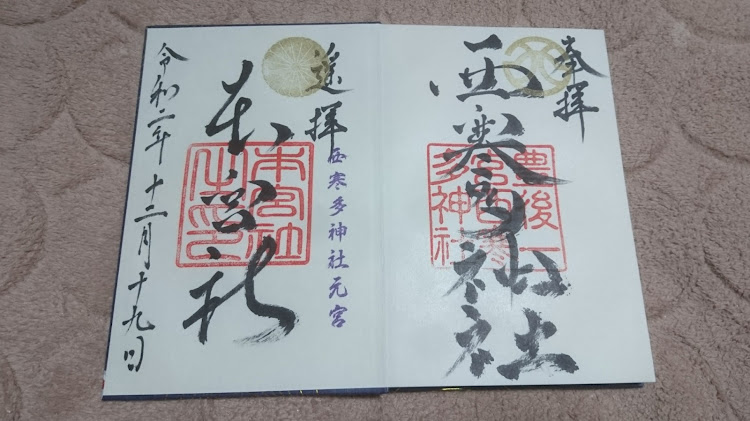 奉拝
西寒多神社
豊後一
宮西寒
多神社
遙拝
西寒多神社元宮
本宮社
本宮社
之印
令和二年十二月十九日